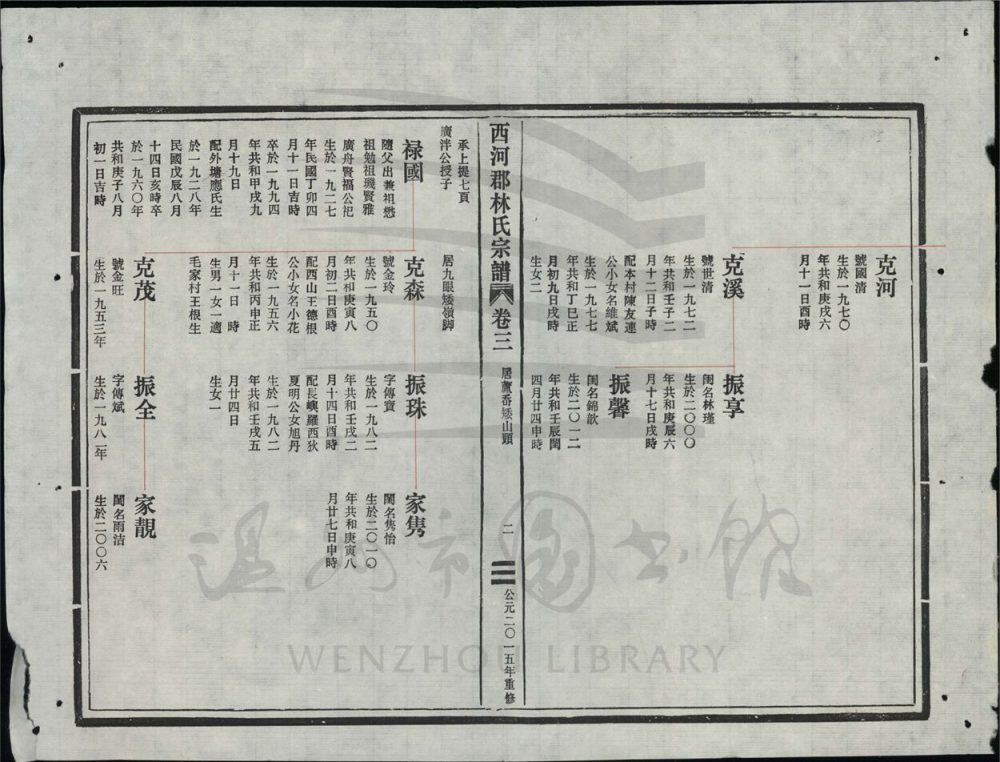 克河
號國清
生於一九七〇
年共和庚戌六
月十一日酉時
克溪
號世清
生於一九七二
年共和壬子二
月十二日子時
配本村陳友連
公小女名維斌
生於一九七七
年共和丁巳正
月初九日戌時
生女二
振享
閨名林瑾
生於二〇〇〇
年共和庚辰六
月十七日戌時
振馨
閨名錦歆
生於二〇一二
年共和壬辰閏
四月廿四申時
西河郡林氏宗譜
卷三
居蘆番矮山頭
二
公元二〇一五年重修
承上提七頁
廣泮公授子
居九眼矮嶺脚
禄國
隨父出兼祖懋
祖勉祖璣賢雅
廣舟賢福公祀
生於一九二七
年民國丁卯四
月十一日吉時
卒於一九九四
年共和甲戌九
月十九日
配外塘應氏生
於一九二八年
民國戊辰八月
十四日亥時卒
於一九六〇年
共和庚子八月
初一日吉時
克森
號金玲
生於一九五〇
年共和庚寅八
月初二日酉時
配西山王德根
公小女名小花
生於一九五六
年共和丙申正
月十一日 時
生男一女一適
毛家村王根生
振珠
字傳寶
生於一九八二
年共和壬戌二
月十四日酉時
配長嶼羅西狄
夏明公女旭丹
生於一九八二
年共和壬戌五
月廿四日
生女一
家雋
閨名雋怡
生於二〇一〇
年共和庚寅八
月廿七日申時
克茂
號金旺
生於一九五三年
振全
字傳斌
生於一九八一年
家靚
閨名雨洁
生於二〇〇六
温州市图书馆
WENZHOU LIBRARY